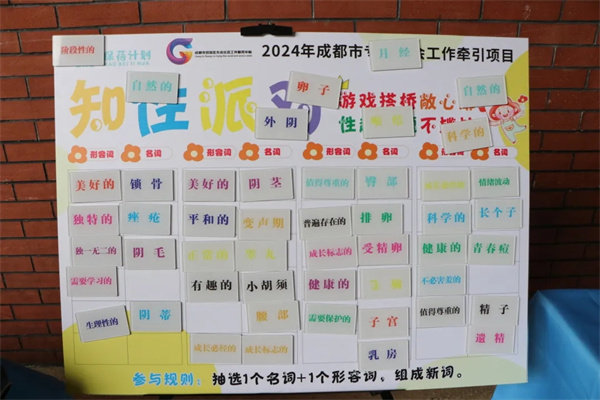 阶段性的
葆蓓计划
2024年成都市
会工作牵引项目
月经
自然的
卵子
自然的
知性派对
外阴
科学的
游戏搭桥敞心
形容词 名词 形容词 名词 形容词 名词 形容词 名词
美好的 锁骨 美好的 阴茎 值得尊重的 臀部 情绪流动
独特的 痤疮 平和的 变声期 普遍存在的 排卵 科学的 长个子
独一无二的 阴毛 成长标志的 受精卵 健康的 青春痘
需要学习的 有趣的 小胡须 健康的 不必害羞的
生理性的 阴蒂 腰部 需要保护的 子宫 值得尊重的 精子
成长必经的 成长标志的 乳房 遗精
参与规则：抽选1个名词+1个形容词，组成新词。